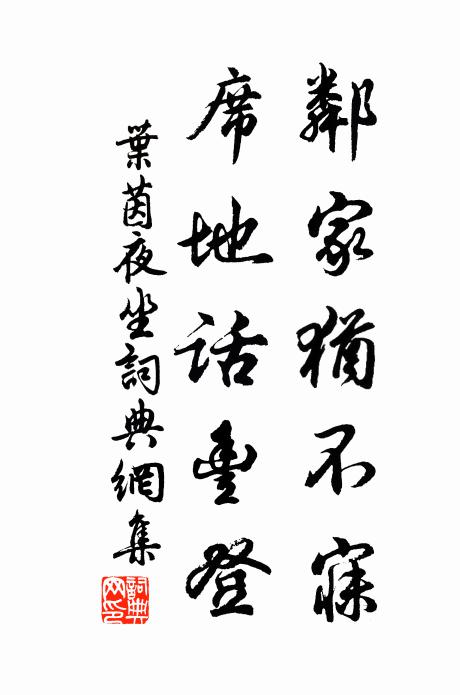 鄰家猶不寐
席地話豐登
葉茵夜坐詞典網集
詞典网印